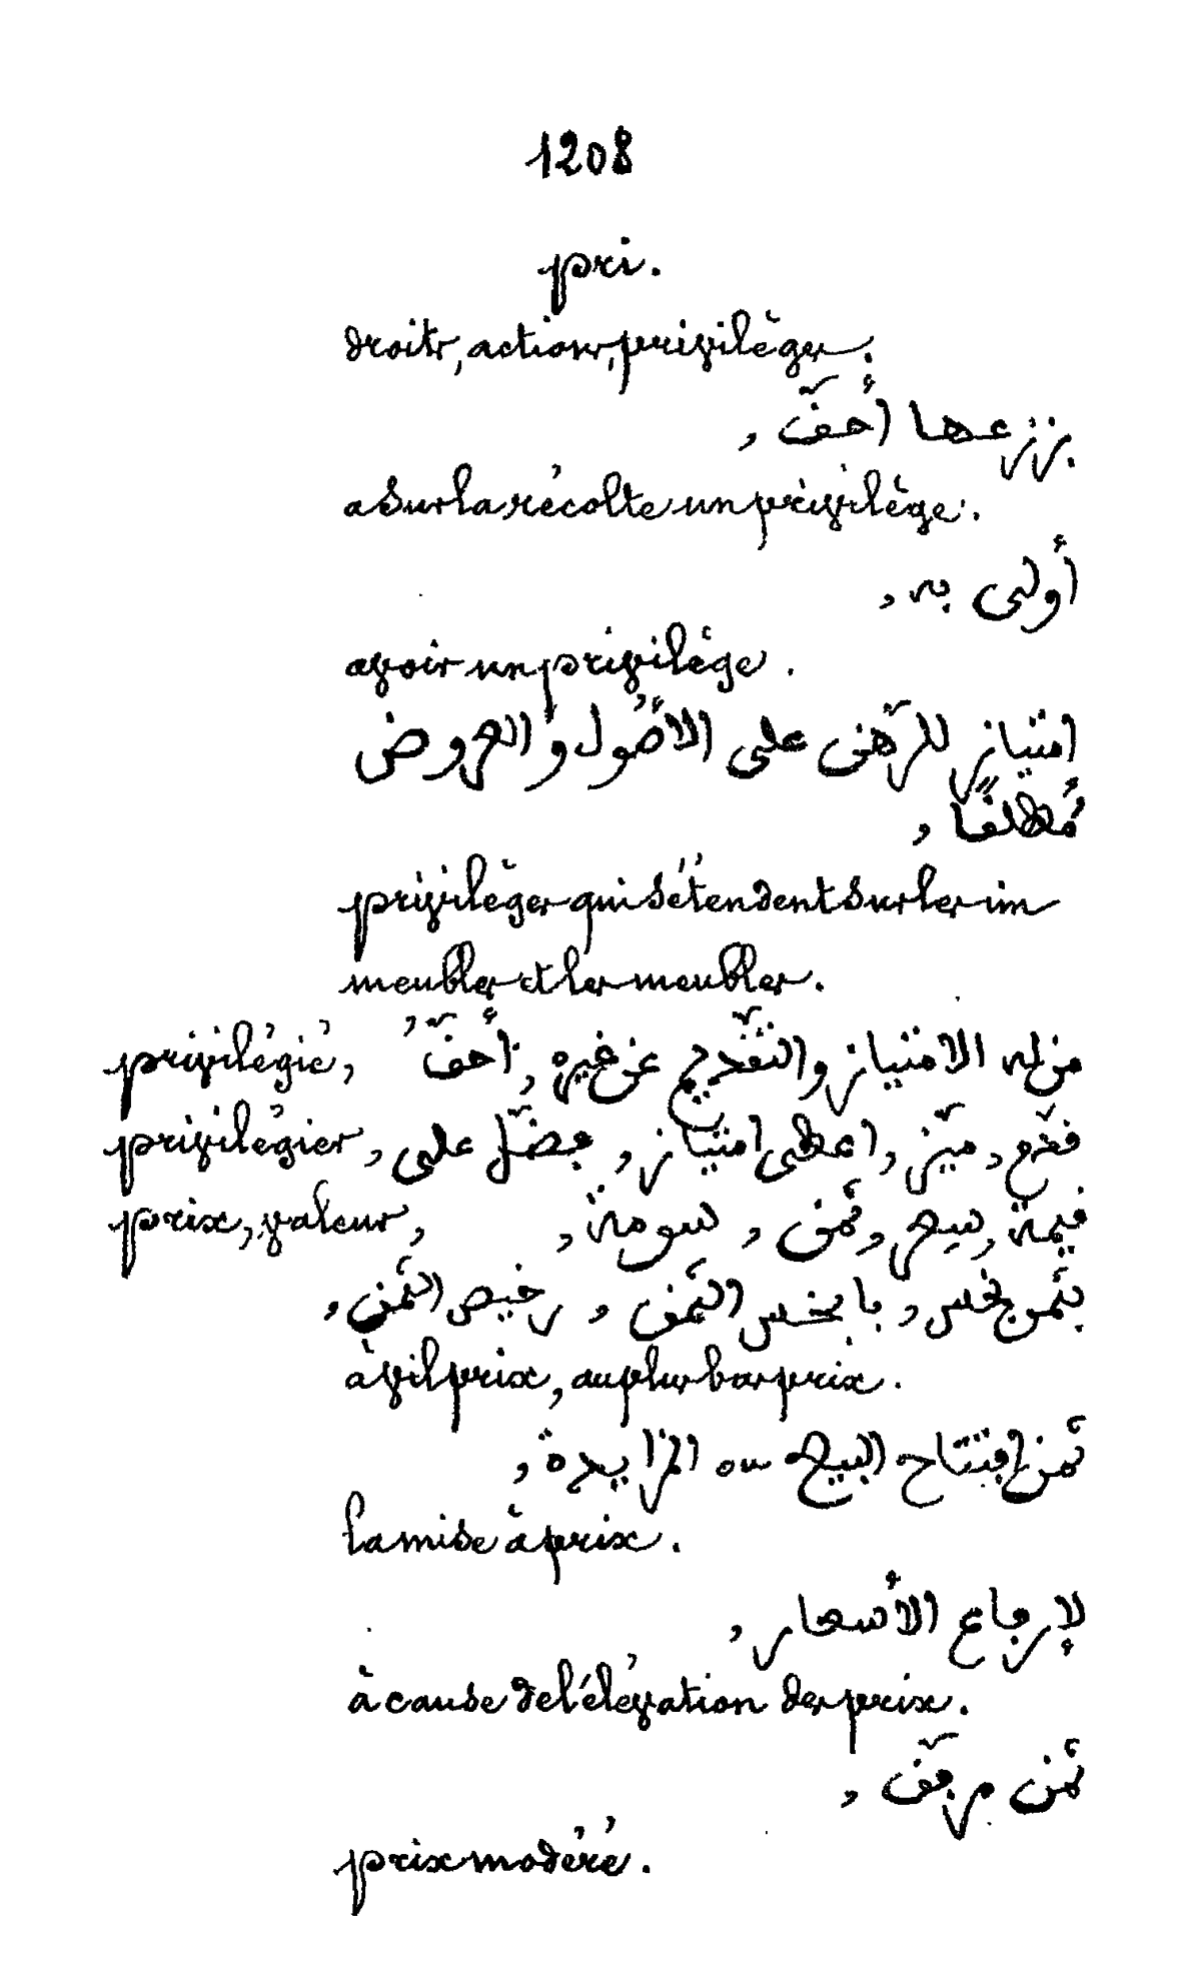 1208
pri.
droits, actions, privilèges.
بزرعها أحقّ ,
a sur la récolte un privilège.
أولى به ,
avoir un privilège.
امتياز للرّهن على الأصُول والعروض
مُطلقًا ,
privilèges qui s'étendent sur les im
meubles et les meubles.
privilégié, من له الامتياز والتقديم عن غيره , أحقّ ,
privilégier, قدّم , ميّز , اعطى امتياز , فضّل على ,
prix, valeur, قيمة , بيع , ثمن , سومة ,
بثمن بخس , بابخس الثمن , رخيص الثمن ,
à vil prix, au plus bas prix.
ثمن افتتاح البيع ou المزايدة ,
la mise à prix.
لإرجاع الأسعار ,
à cause de l'élévation des prix.
ثمن مرفّق ,
prix modéré.